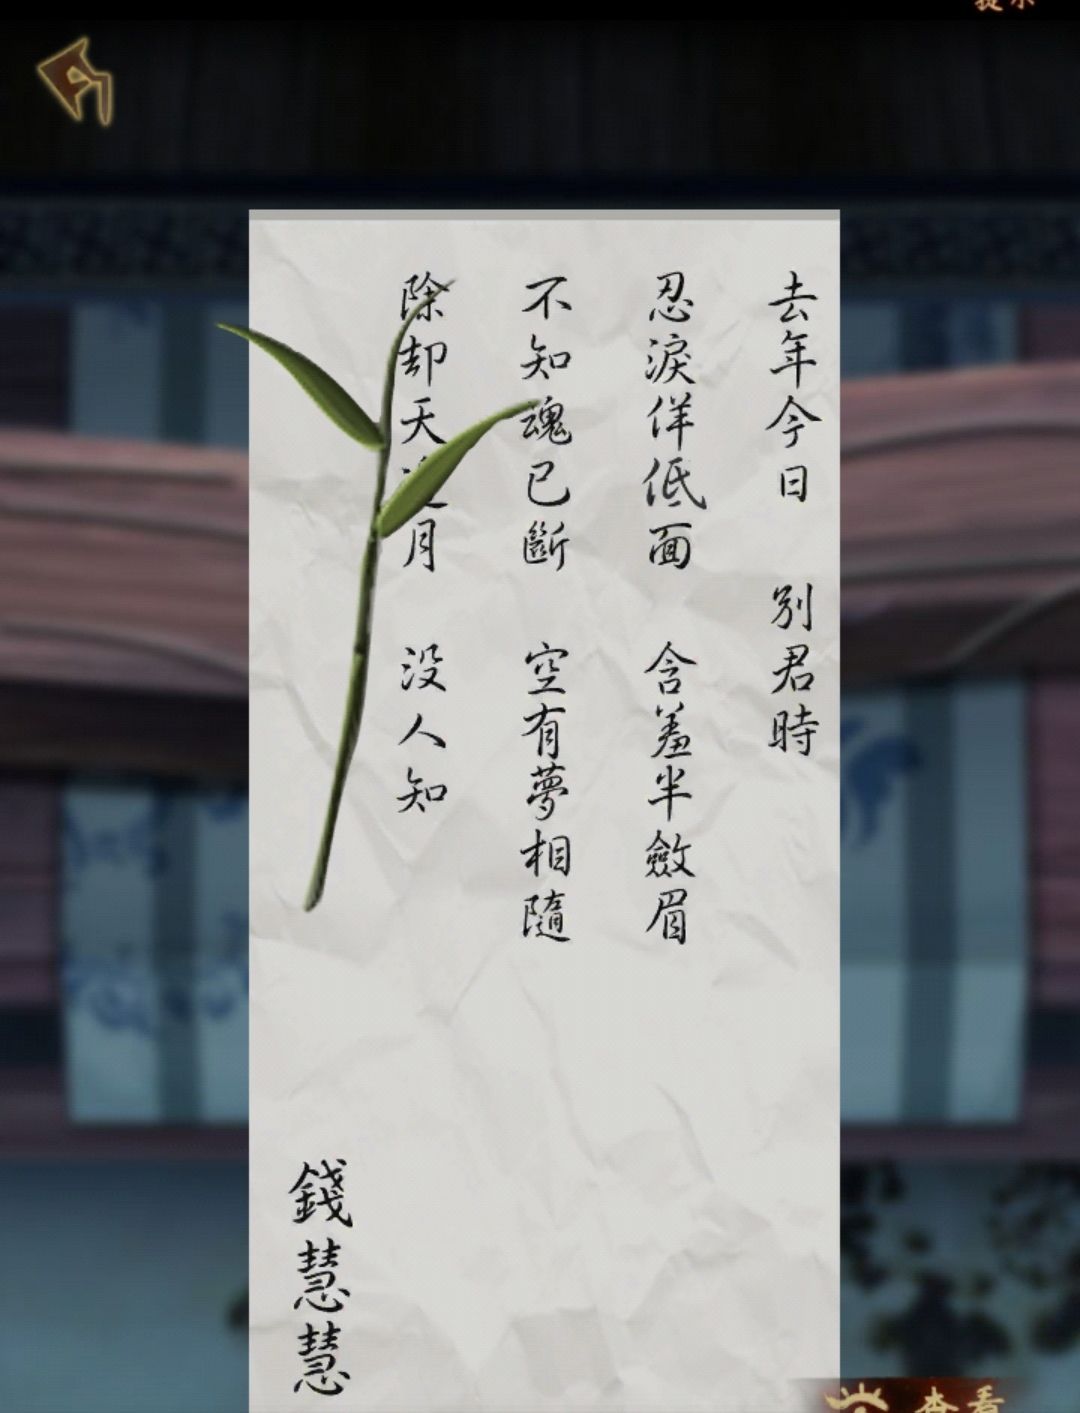 去年今日 別君時
忍淚佯低面 含羞半斂眉
不知魂已斷 空有夢相隨
除却天邊月 没人知
錢慧慧
查看